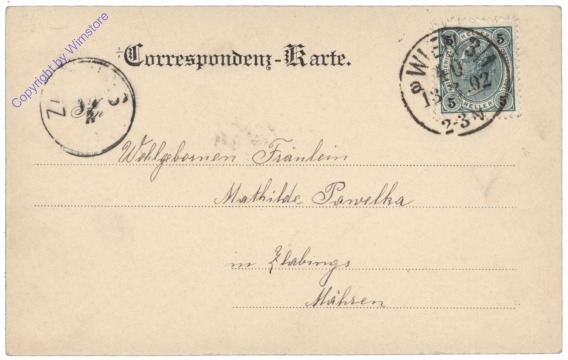 Copyright by Wimstore
Correspondenz-Karte.
5 5
WIEN 3/1
40
13 02
2-3N
5 HELLER 5
Z
Wohlgebornen Fräulein
Mathilde Pawelka
in Zlabings
Mähren